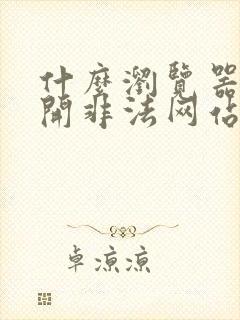 什麼瀏覽器
開非法网站
卓凉凉